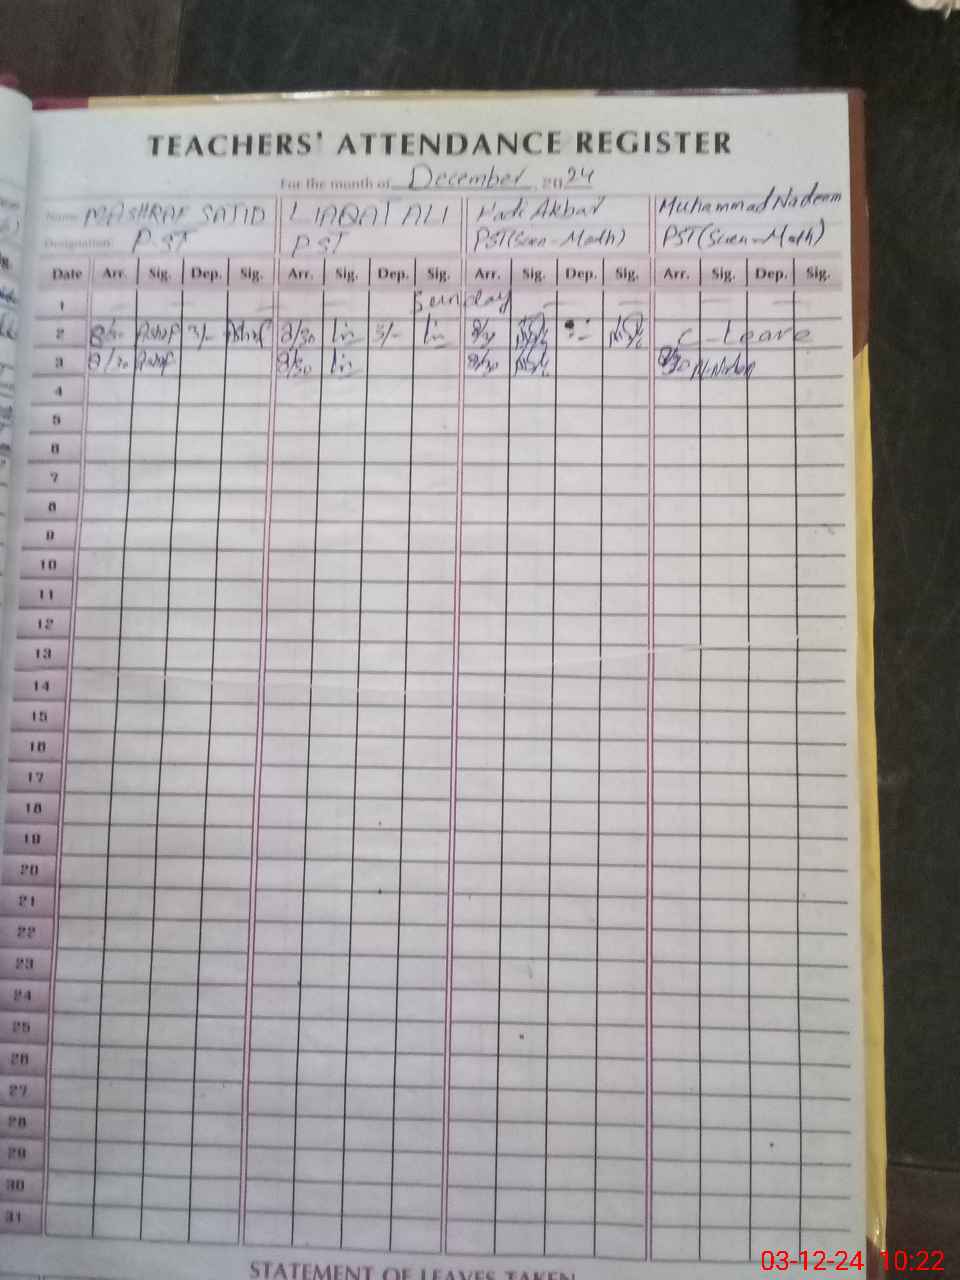 TEACHERS' ATTENDANCE REGISTER
For the month of December, 2024
Name MASHRAF SAJID LIAQAT ALI Hadi Akbar Muhammad Nadeem
Designation: PST PST PST(Scien-Math) PST(Scien-Math)
Date Arr. Sig. Dep. Sig. Arr. Sig. Dep. Sig. Arr. Sig. Dep. Sig. Arr. Sig. Dep. Sig.
1 — — — Sunday — — — —
2 8/30 Ashraf 3/- Ashraf 8/30 3/- 8/30 C-Leave
3 8/30 Ashraf 8/30 8/30 8/30
4
5
6
7
8
9
10
11
12
13
14
15
16
17
18
19
20
21
22
23
24
25
26
27
28
29
30
31
STATEMENT OF LEAVES TAKEN
03-12-24 10:22